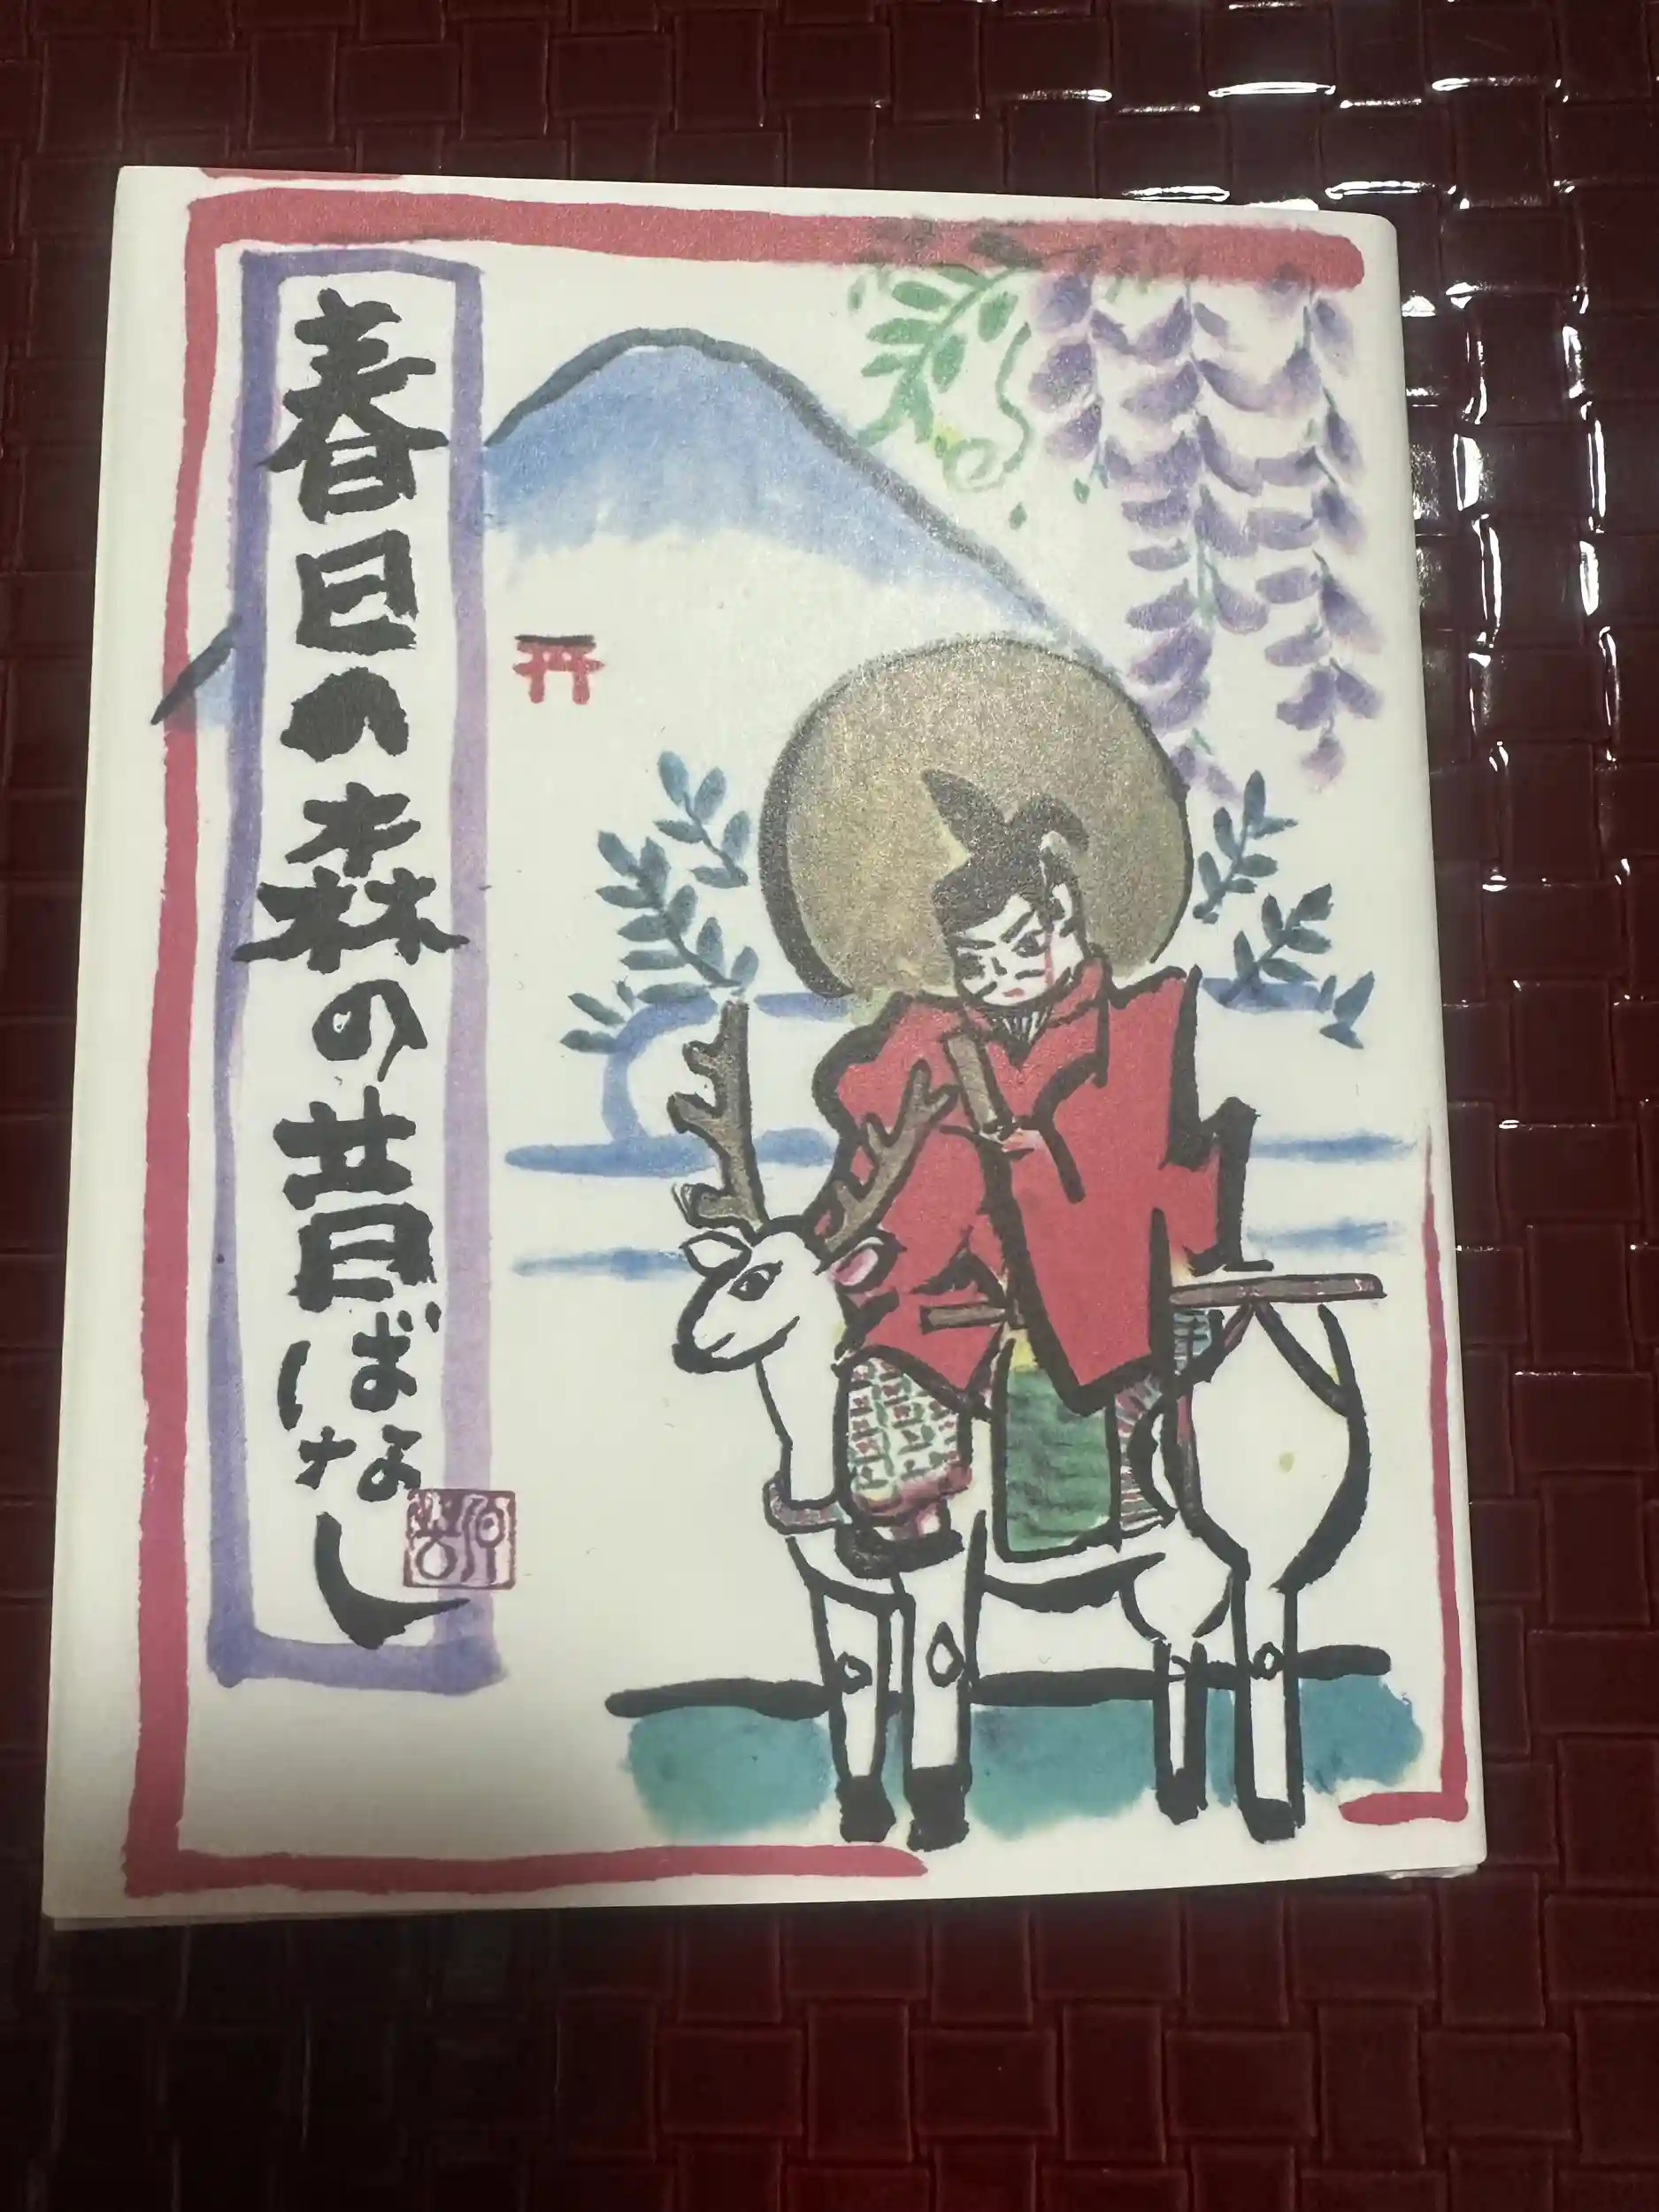 春日の森の昔ばなし